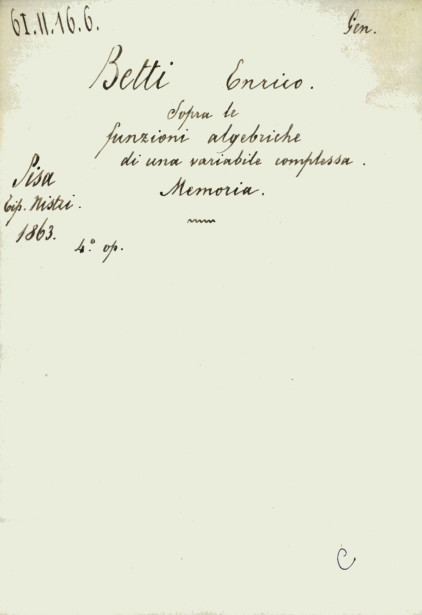 61.11.16.6.
Gen.
Betti Enrico.
Sopra le
funzioni algebriche
di una variabile complessa.
Memoria.
Pisa
Tip. Nistri.
1863.
4.° op.
C